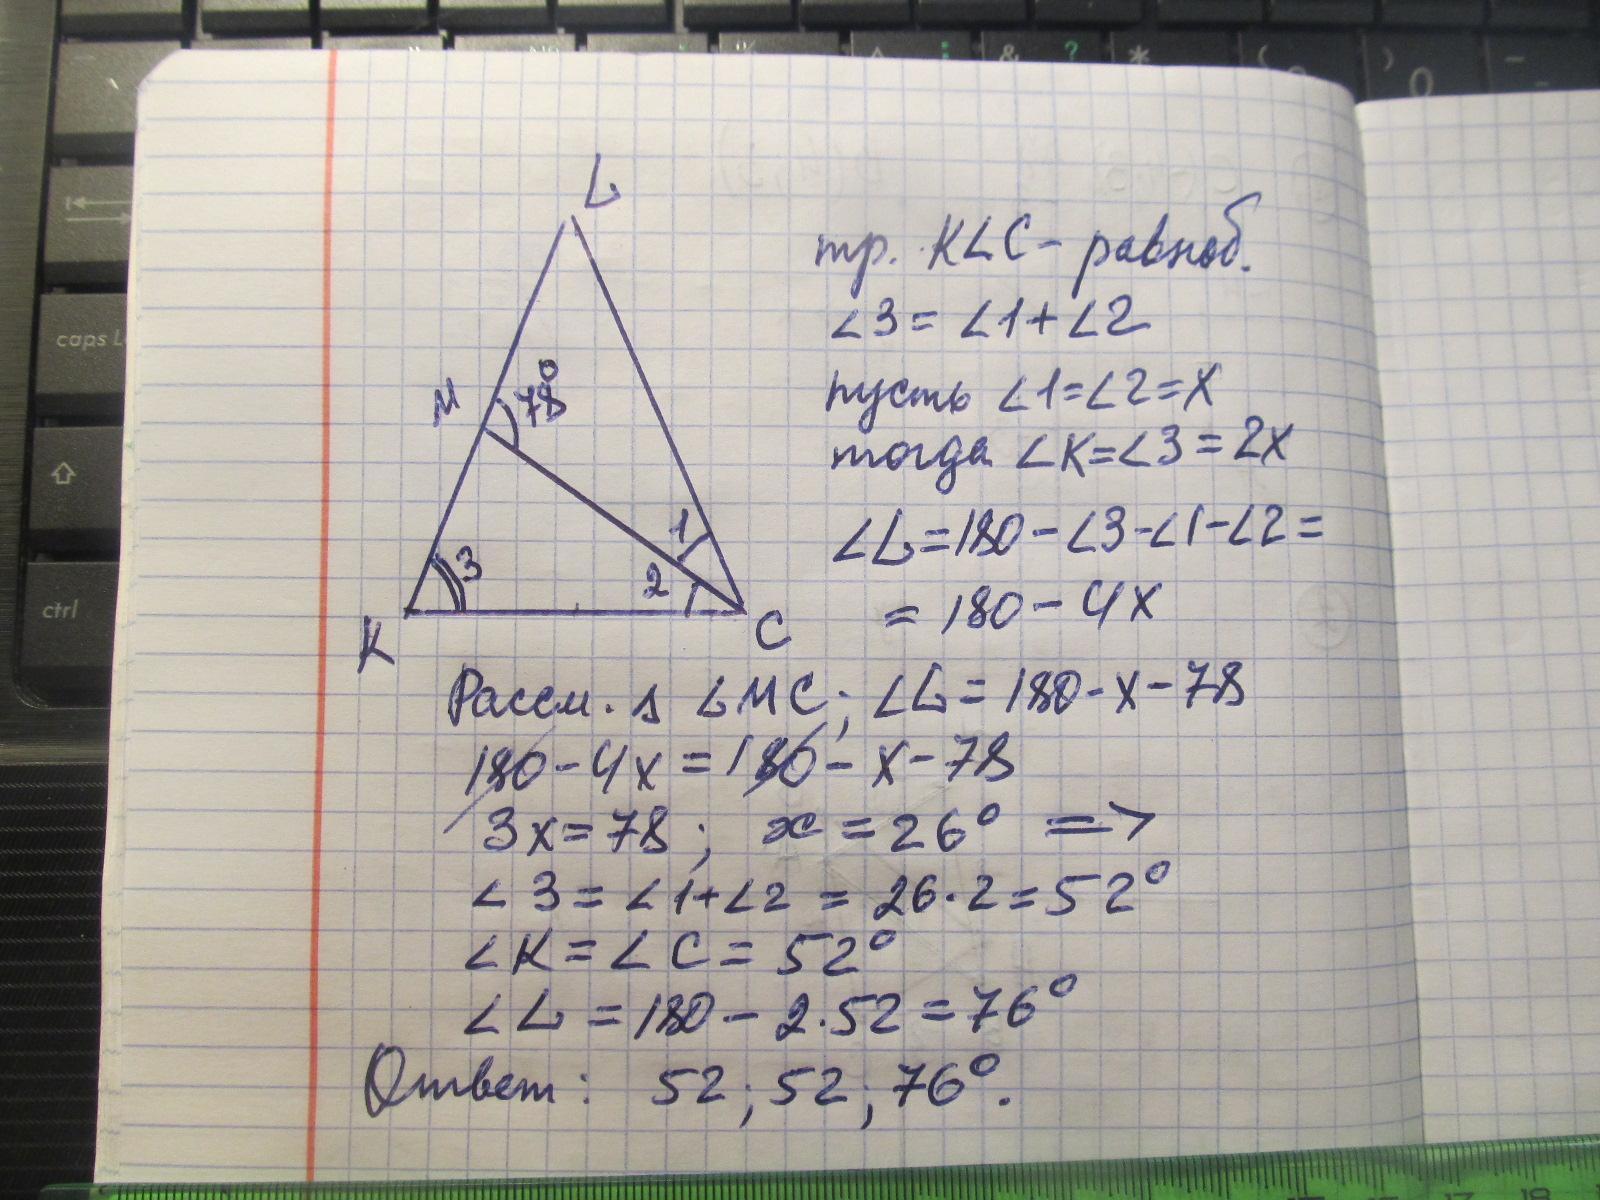 L
M
78°
1
2
3
K
C
тр. KLC - равноб.
∠3 = ∠1 + ∠2
пусть ∠1 = ∠2 = x
тогда ∠K = ∠3 = 2x
∠L = 180 - ∠3 - ∠1 - ∠2 =
= 180 - 4x
Рассм. Δ LMC; ∠L = 180 - x - 78
180 - 4x = 180 - x - 78
3x = 78; x = 26° =>
∠3 = ∠1 + ∠2 = 26·2 = 52°
∠K = ∠C = 52°
∠L = 180 - 2·52 = 76°
Ответ: 52; 52; 76°.
caps L
ctrl
%
^
&
?
*
(
)
0